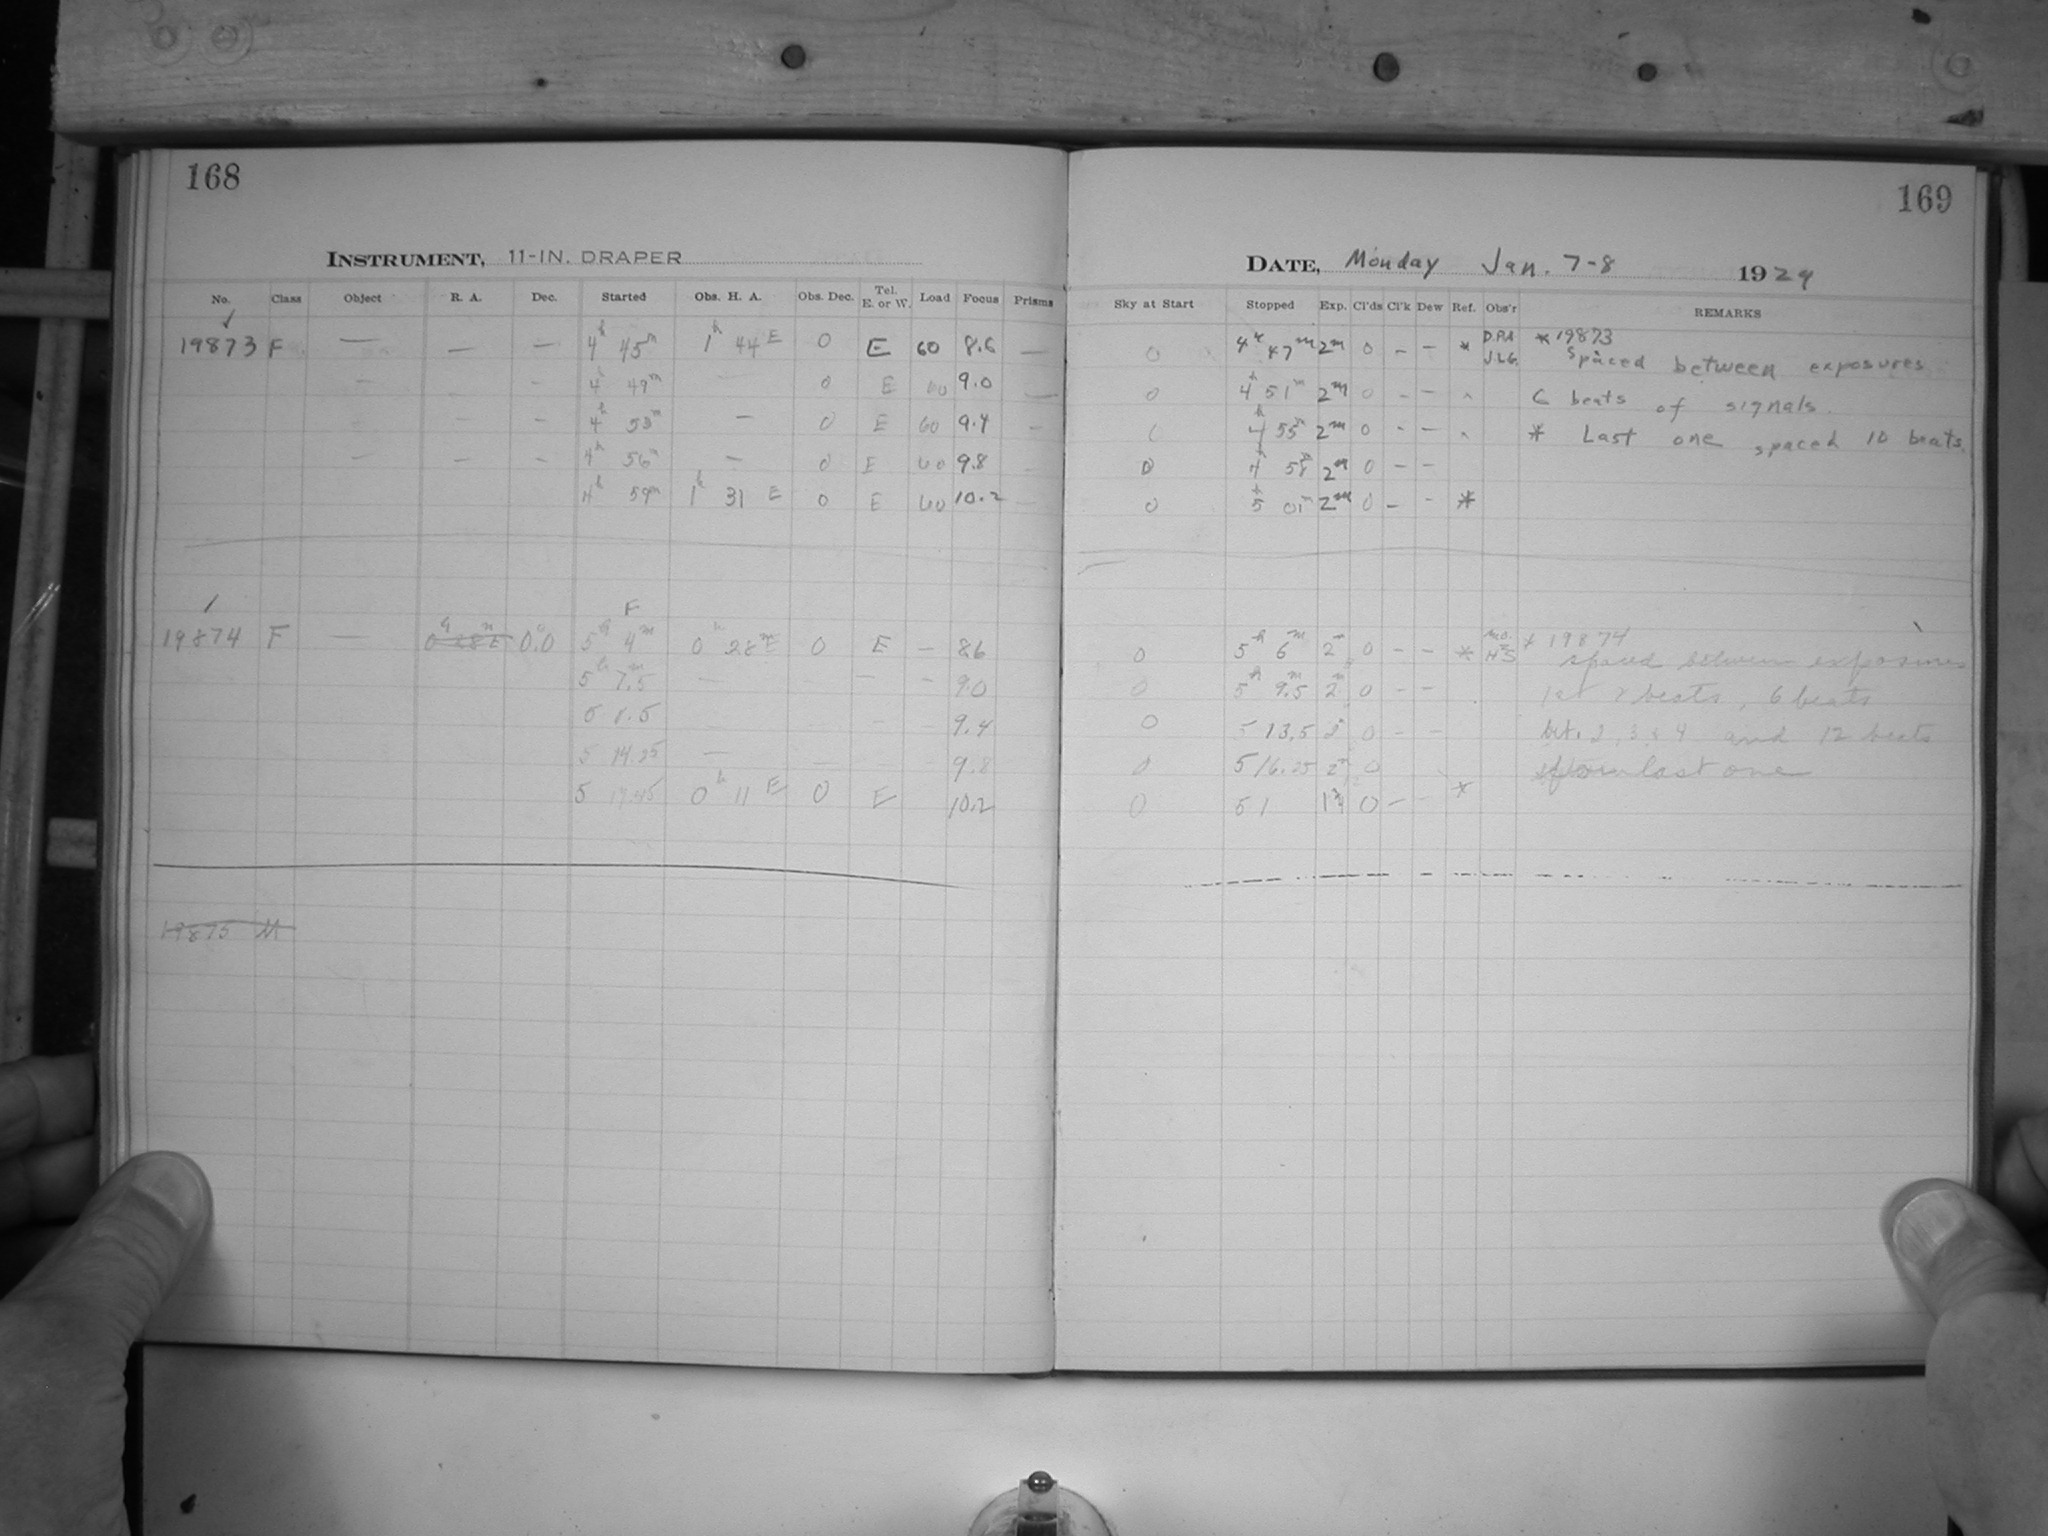 168
INSTRUMENT, 11-IN. DRAPER
No. Class Object R. A. Dec. Started Obs. H. A. Obs. Dec. Tel. E. or W. Load Focus Prisms
19873 F — — — 4h 45m 1h 44 E 0 E 60 8.6 —
— — 4h 49m — 0 E 60 9.0 —
— — 4h 53m — 0 E 60 9.4 —
— — — 4h 56m — 0 E 60 9.8 —
4h 59m 1h 31 E 0 E 60 10.2 —
F
19874 F — 0.0 5h 4m 0h 28m E 0 E — 8.6
5h 7.5m — — — — 9.0
9.4
5 14.25 — 9.8
5 17.45 0h 11 E 0 E 10.2
19875 M
169
DATE, Monday Jan. 7-8 1929
Sky at Start Stopped Exp. Cl'ds Cl'k Dew Ref. Obs'r REMARKS
0 4h 47m 2m 0 — — * J.L.G. * 19873
Spaced between exposures
0 4h 51m 2m 0 — — 6 beats of signals.
4h 55m 2m 0 — — * Last one spaced 10 beats.
0 4h 58m 2m 0 — —
0 5h 01m 2m 0 — — *
0 5h 6m 2m 0 — — * * 19874
spaced between exposures
0 5h 9.5m 2m 0 — — beats, 6 beats
0 5 13.5 2m 0 — — bet. 2, 3 & 4 and 12 beats
0 5 16.25 2m 0 last one
0 5 1 1¾ 0 — — *